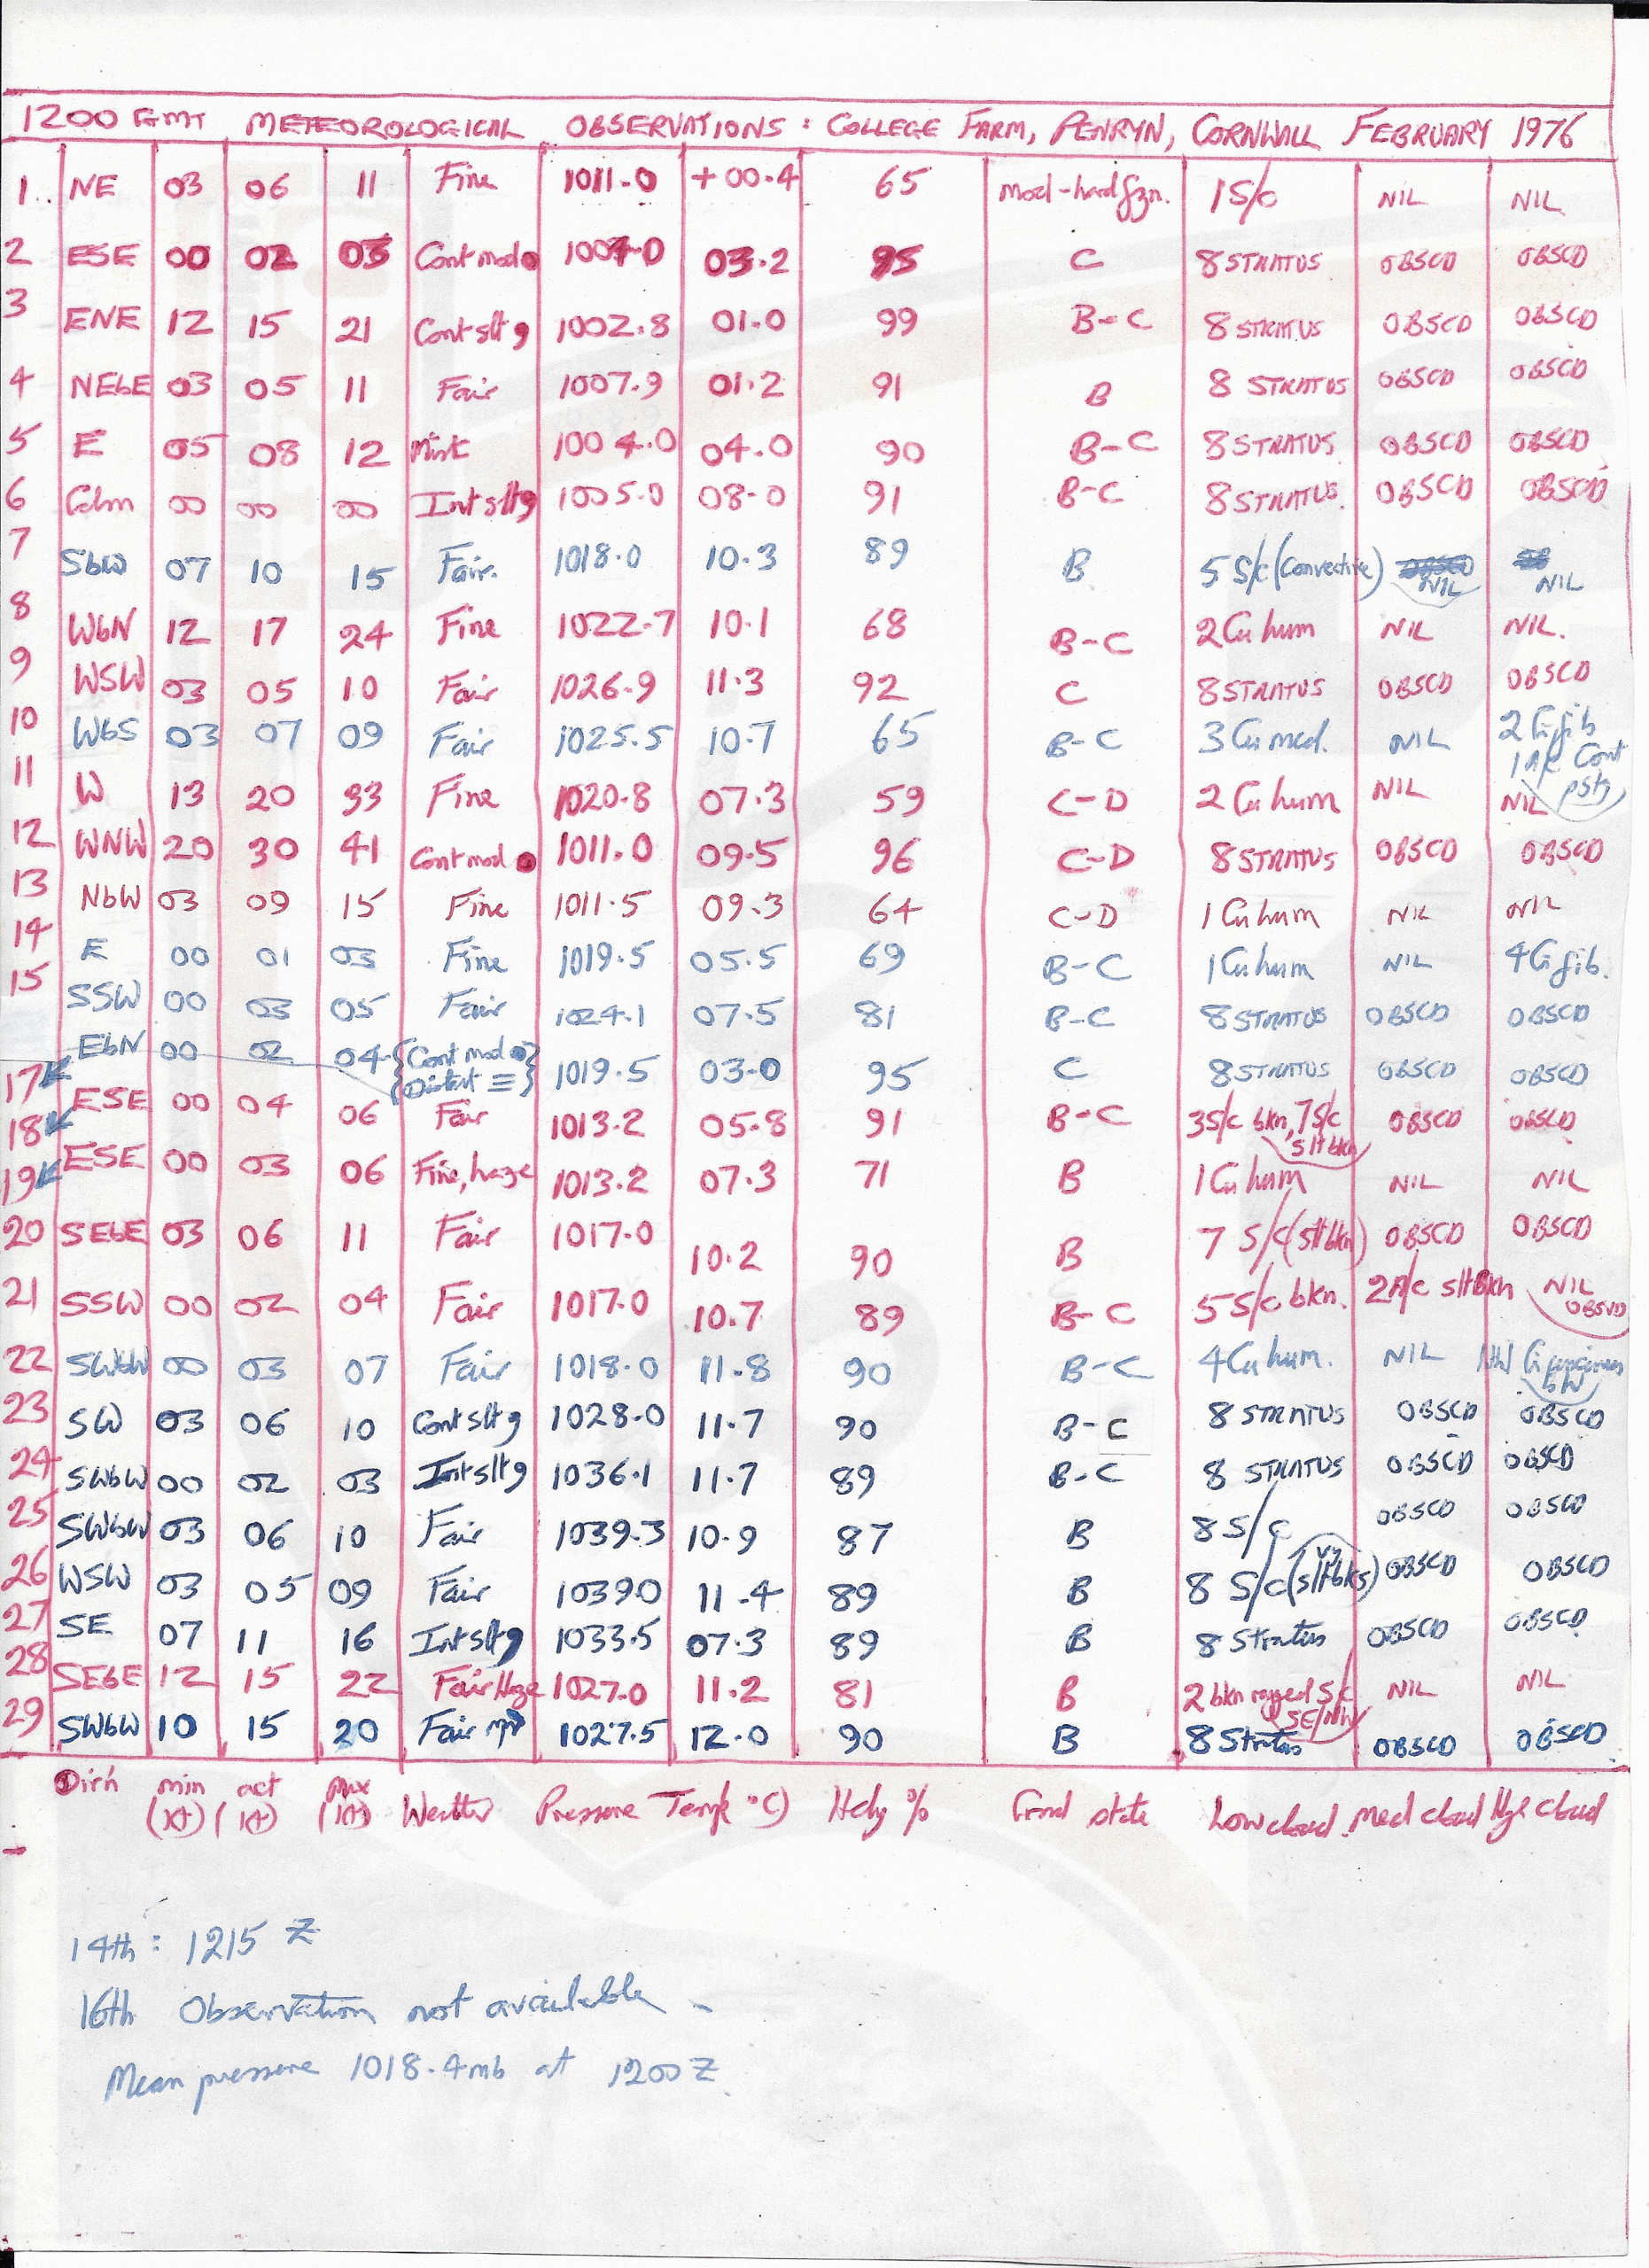 1200 GMT METEOROLOGICAL OBSERVATIONS: COLLEGE FARM, PENRYN, CORNWALL FEBRUARY 1976
1 NE 03 06 11 Fine 1011.0 +00.4 65 mod-hard fzn. 1 S/c NIL NIL
2 ESE 00 02 03 Cont mod ● 1004.0 03.2 95 C 8 STRATUS OBSCD OBSCD
3 ENE 12 15 21 Cont slt 9 1002.8 01.0 99 B-C 8 STRATUS OBSCD OBSCD
4 NEbE 03 05 11 Fair 1007.9 01.2 91 B 8 STRATUS OBSCD OBSCD
5 E 05 08 12 Mist 1004.0 04.0 90 B-C 8 STRATUS OBSCD OBSCD
6 Calm 00 00 00 Int slt 9 1005.0 08.0 91 B-C 8 STRATUS. OBSCD OBSCD
7 SbW 07 10 15 Fair. 1018.0 10.3 89 B 5 S/c (Convective) NIL NIL
8 WbN 12 17 24 Fine 1022.7 10.1 68 B-C 2 Cu hum NIL NIL.
9 WSW 03 05 10 Fair 1026.9 11.3 92 C 8 STRATUS OBSCD OBSCD
10 WbS 03 07 09 Fair 1025.5 10.7 65 B-C 3 Cu med. NIL 2 Ci fib
1 A/c Cont
11 W 13 20 33 Fine 1020.8 07.3 59 C-D 2 Cu hum NIL NIL
12 WNW 20 30 41 Cont mod ● 1011.0 09.5 96 C-D 8 STRATUS OBSCD OBSCD
13 NbW 03 09 15 Fine 1011.5 09.3 64 C-D 1 Cu hum NIL NIL
14 E 00 01 03 Fine 1019.5 05.5 69 B-C 1 Cu hum NIL 4 Ci fib.
15 SSW 00 03 05 Fair 1024.1 07.5 81 B-C 8 STRATUS OBSCD OBSCD
17 EbN 00 02 04 {Cont mod ●} 1019.5 03.0 95 C 8 STRATUS OBSCD OBSCD
{Distant ≡}
18 ESE 00 04 06 Fair 1013.2 05.8 91 B-C 3 S/c bkn, 7 S/c OBSCD OBSCD
slt bkn
19 ESE 00 03 06 Fine, haze 1013.2 07.3 71 B 1 Cu hum NIL NIL
20 SEbE 03 06 11 Fair 1017.0 10.2 90 B 7 S/c (slt bkn) OBSCD OBSCD
21 SSW 00 02 04 Fair 1017.0 10.7 89 B-C 5 S/c bkn. 2 A/c slt Bkn NIL
OBSVD
22 SWbW 00 03 07 Fair 1018.0 11.8 90 B-C 4 Cu hum. NIL
23 SW 03 06 10 Cont slt 9 1028.0 11.7 90 B-C 8 STRATUS OBSCD OBSCD
24 SWbW 00 02 03 Int slt 9 1036.1 11.7 89 B-C 8 STRATUS OBSCD OBSCD
25 SWbW 03 06 10 Fair 1039.3 10.9 87 B 8 S/c OBSCD OBSCD
26 WSW 03 05 09 Fair 1039.0 11.4 89 B 8 S/c (vy slt bks) OBSCD OBSCD
27 SE 07 11 16 Int slt 9 1033.5 07.3 89 B 8 Stratus OBSCD OBSCD
28 SEbE 12 15 22 Fair Haze 1027.0 11.2 81 B 2 bkn ragged S/c NIL NIL
SE/NW
29 SWbW 10 15 20 Fair 1027.5 12.0 90 B 8 Stratus OBSCD OBSCD
Dir'n min act max Weather Pressure Temp °C) Hdy % Grnd state Low cloud. Med cloud High cloud
(kt) (kt) (kt)
14th: 1215 Z
16th Observation not available -
Mean pressure 1018.4 mb at 1200 Z.